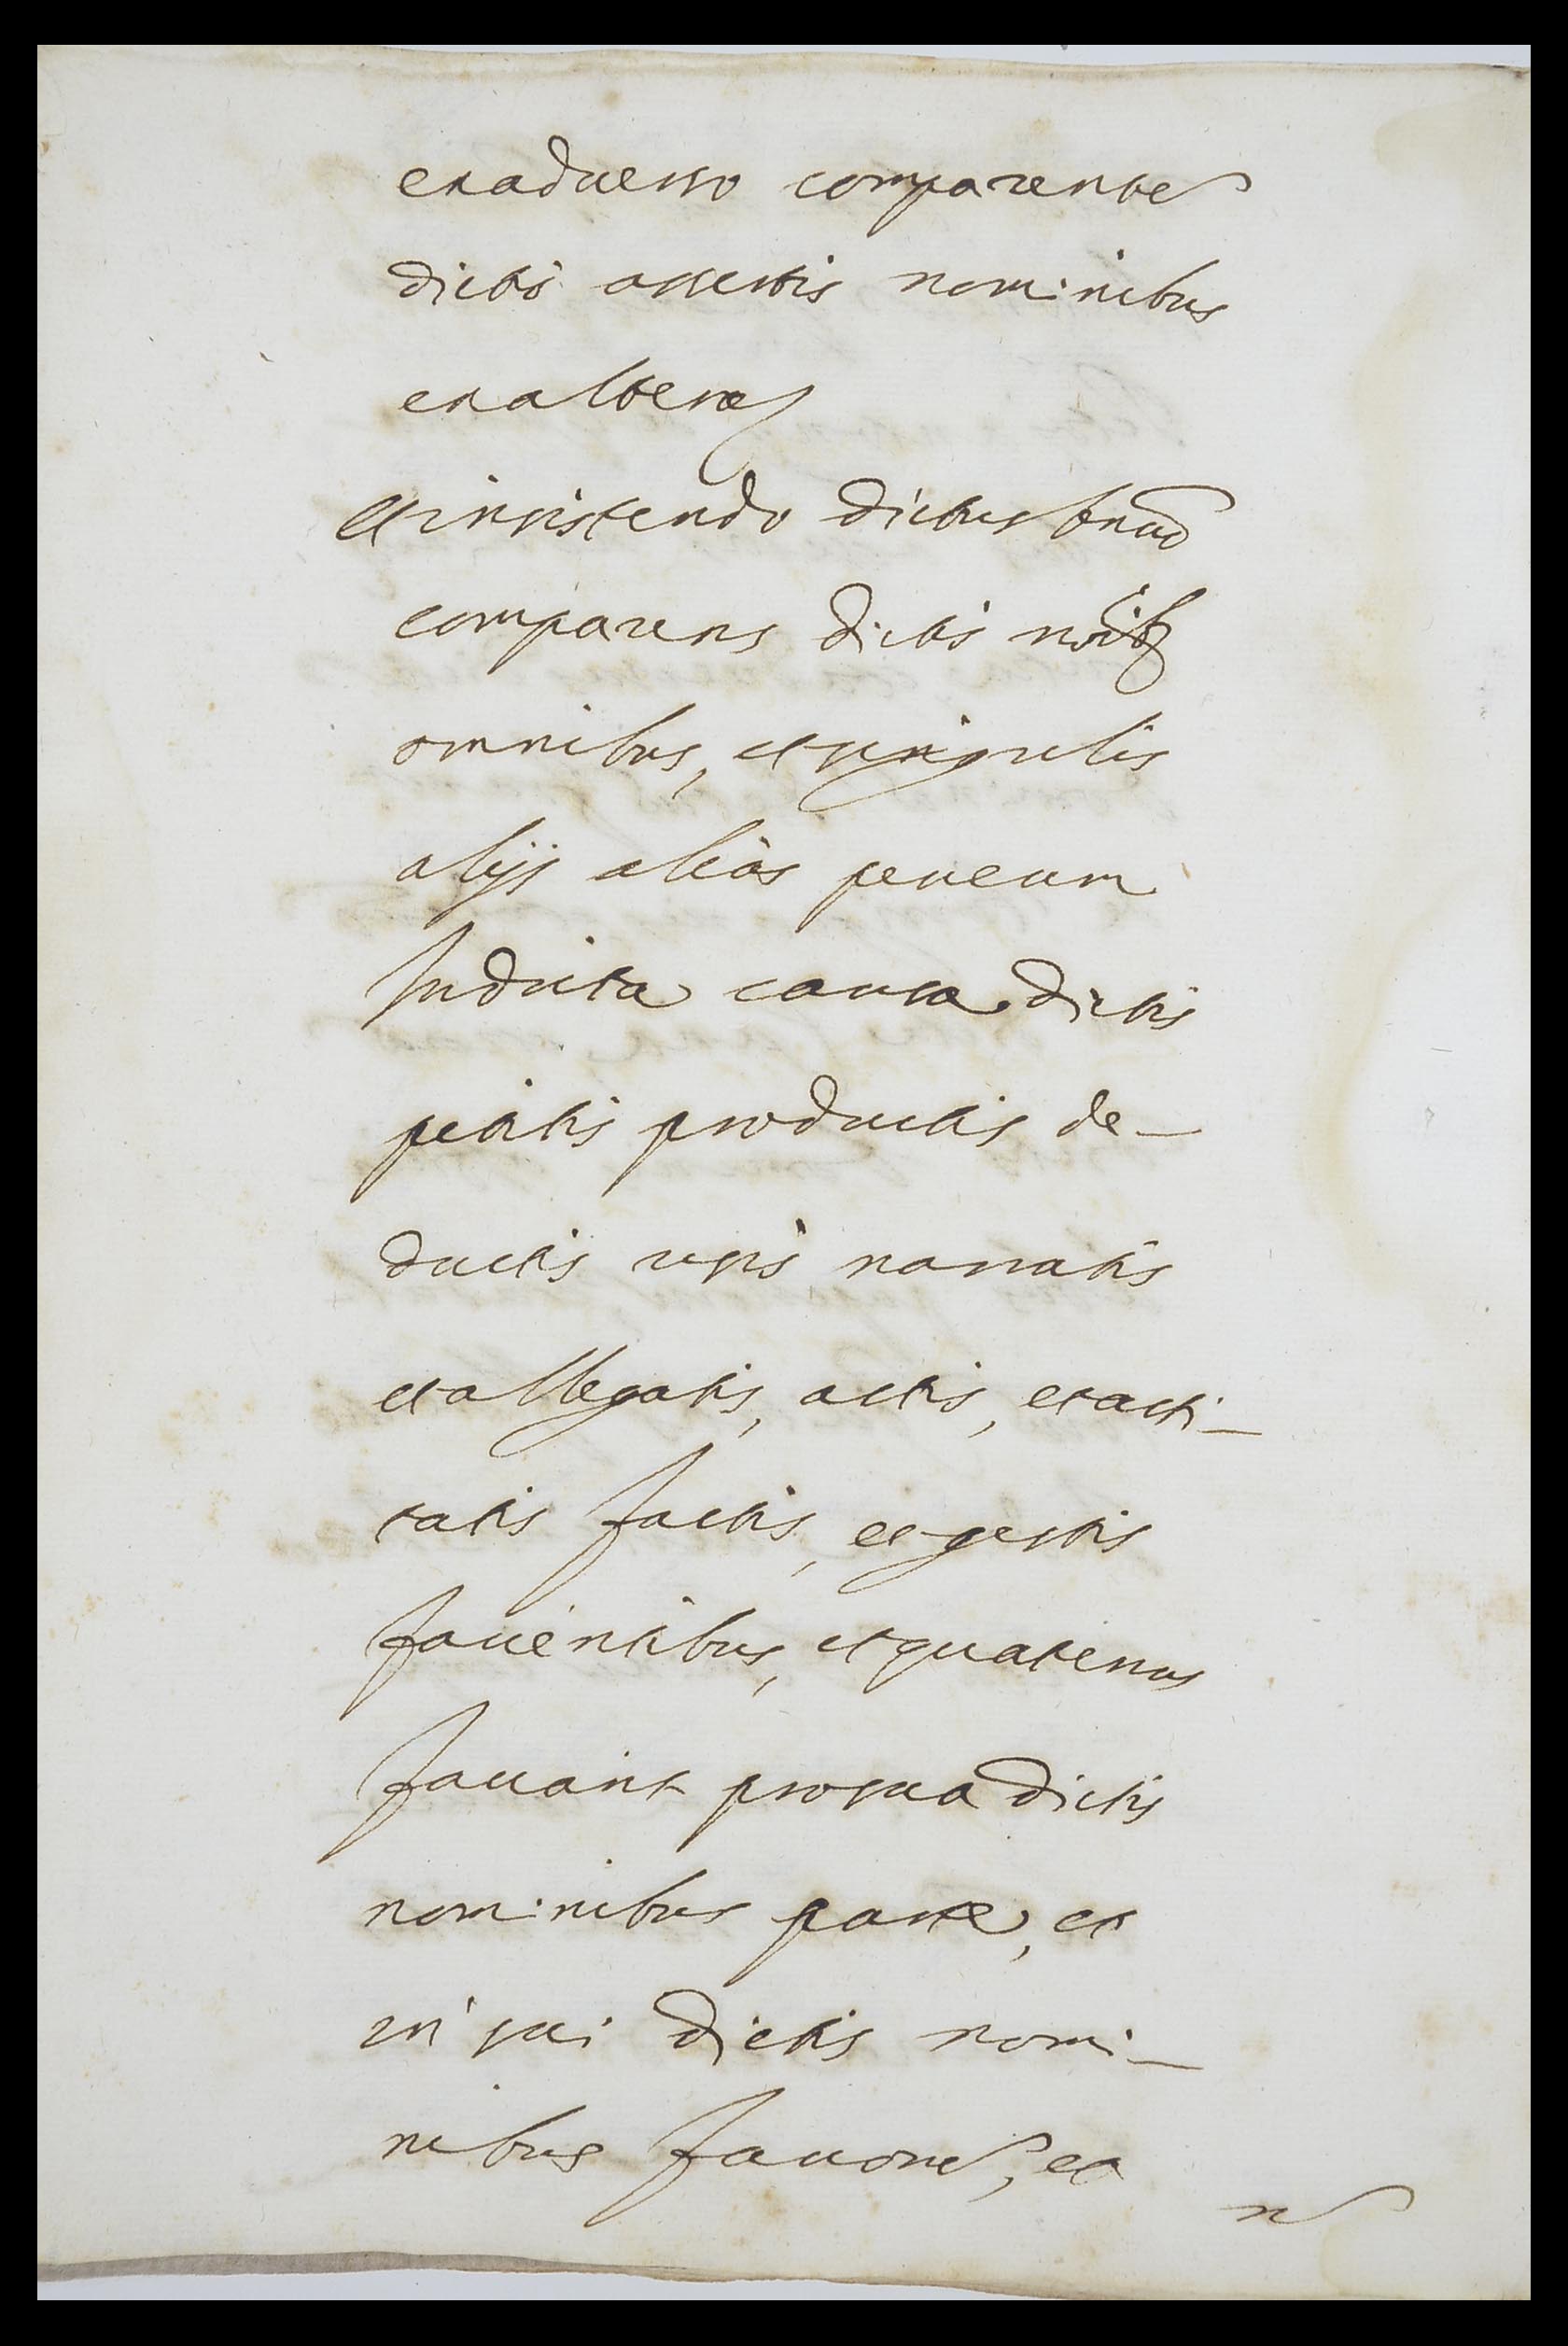 ex aduerso comparente
dictis assertis nominibus
ex altera
Et insistendo dictus
comparens dictis noïb
omnibus, et singulis
alijs alias per eum
In dicta causa dictis
petitis productis de-
ductis iuris narratis
et allegatis, actis, et acti-
tatis factis, et gestis
fauentibus, et quatenus
faueant pro sua dictis
nominibus parte, et
in sui dictis nomi-
nibus fauorem, et
n